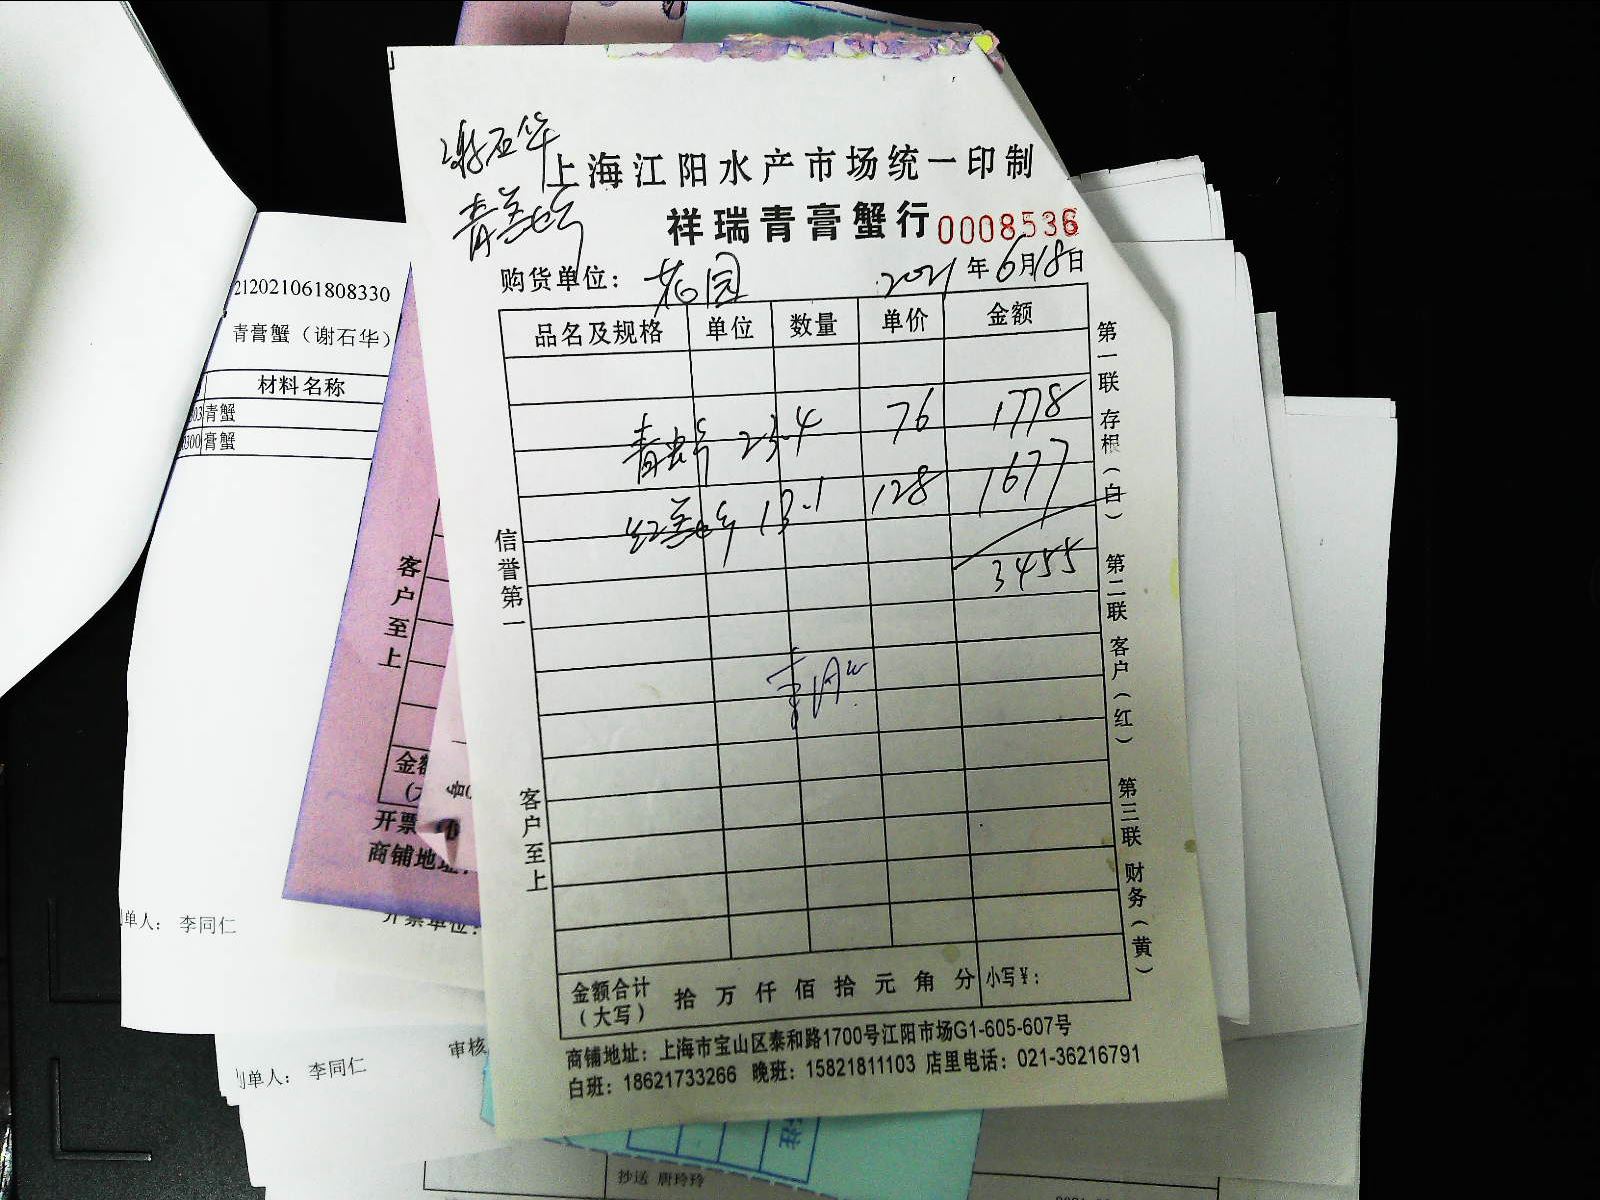 谢石华
青膏蟹
上海江阳水产市场统一印制
祥瑞青膏蟹行 0008536
购货单位： 花园 2021年6月18日
品名及规格 单位 数量 单价 金额
青蟹 23.4 76 1778
红膏蟹 13.1 128 1677
3455
信誉第一
客户至上
第一联 存根（白） 第二联 客户（红） 第三联 财务（黄）
金额合计（大写） 拾 万 仟 佰 拾 元 角 分 小写¥：
商铺地址：上海市宝山区泰和路1700号江阳市场G1-605-607号
白班：18621733266 晚班：15821811103 店里电话：021-36216791
212021061808330
青膏蟹（谢石华）
材料名称
青蟹
膏蟹
客户至上
开票
商铺地址
开票单位：
单人： 李同仁
单人： 李同仁
审核
抄送 唐玲玲